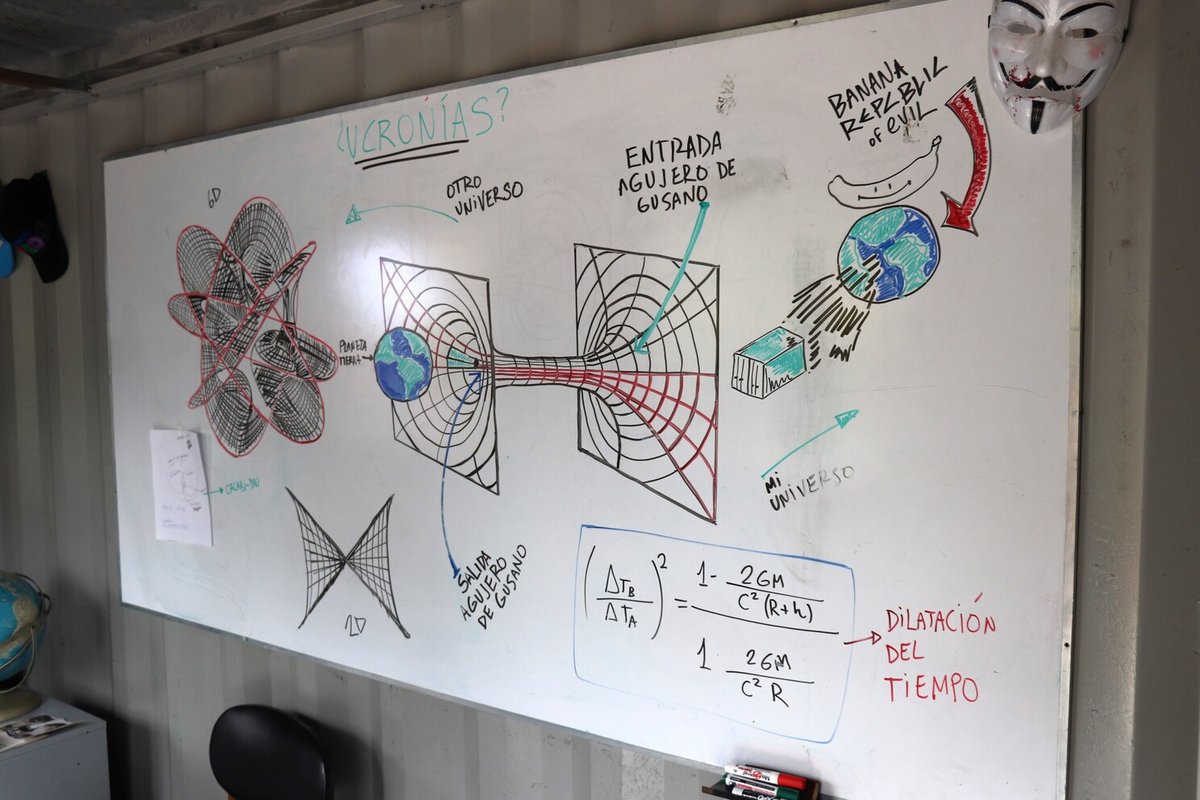 ¿UCRONÍAS?
6D
OTRO
UNIVERSO
ENTRADA
AGUJERO DE
GUSANO
BANANA
REPUBLIC
of EVIL
PLANETA
TIERRA
MI
UNIVERSO
CALABI-YAU
2D
SALIDA
AGUJERO
DE GUSANO
(ΔTB / ΔTA)² = (1 - 2GM / C²(R+h)) / (1 2GM / C² R)
DILATACIÓN
DEL
TIEMPO